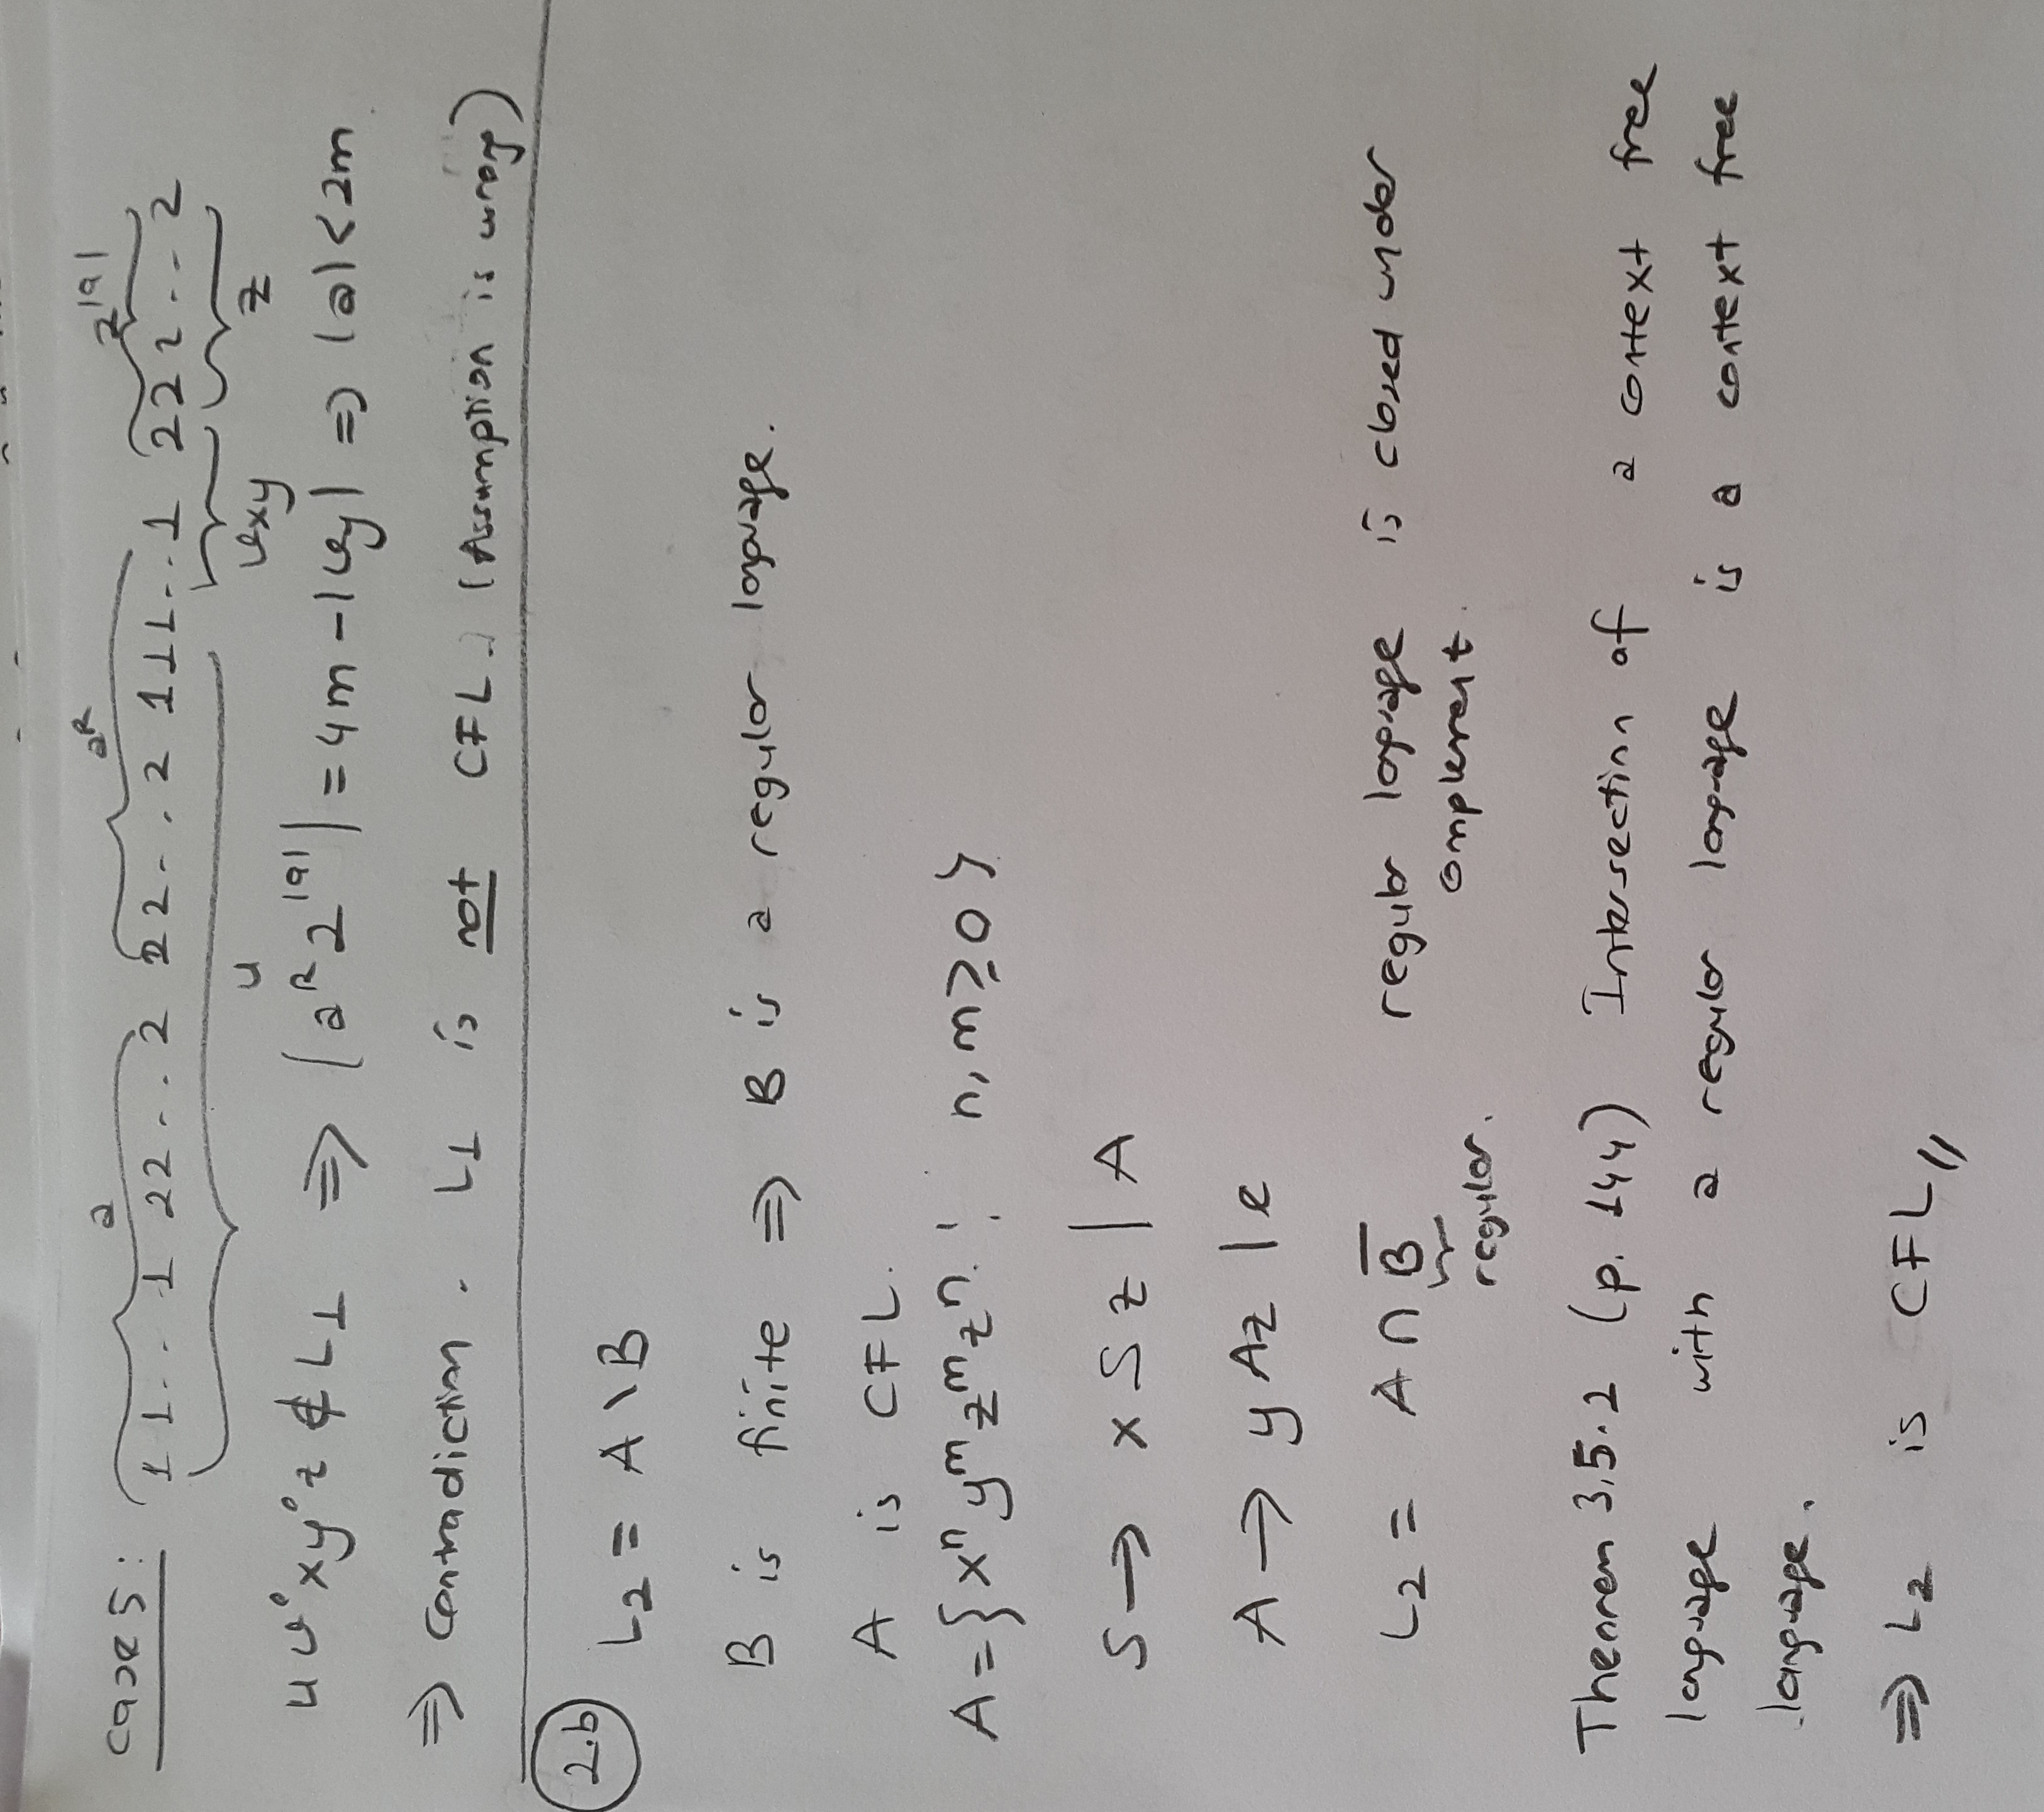 case 5: a a^R 2^|a|
1 1 .. 1 22 . . 2 22 - . 2 1 1 1 . . 1 222 . . 2
u vxy z
u v⁰ x y⁰ z ∉ L1 ⇒ |a^R 2^|a|| = 4m - |vy| ⇒ |a| < 2m
⇒ Contradiction . L1 is not CFL. (Assumption is wrong)
2.b
L2 = A \ B
B is finite ⇒ B is a regular language.
A is CFL.
A = { xⁿ yᵐ zᵐ zⁿ : n, m ≥ 0 }
S → x S z | A
A → y A z | e
L2 = A ∩ B̅ regular language is closed under
regular. complement.
Theorem 3.5.2 (p. 144) Intersection of a context free
language with a regular language is a context free
language.
⇒ L2 is CFL //